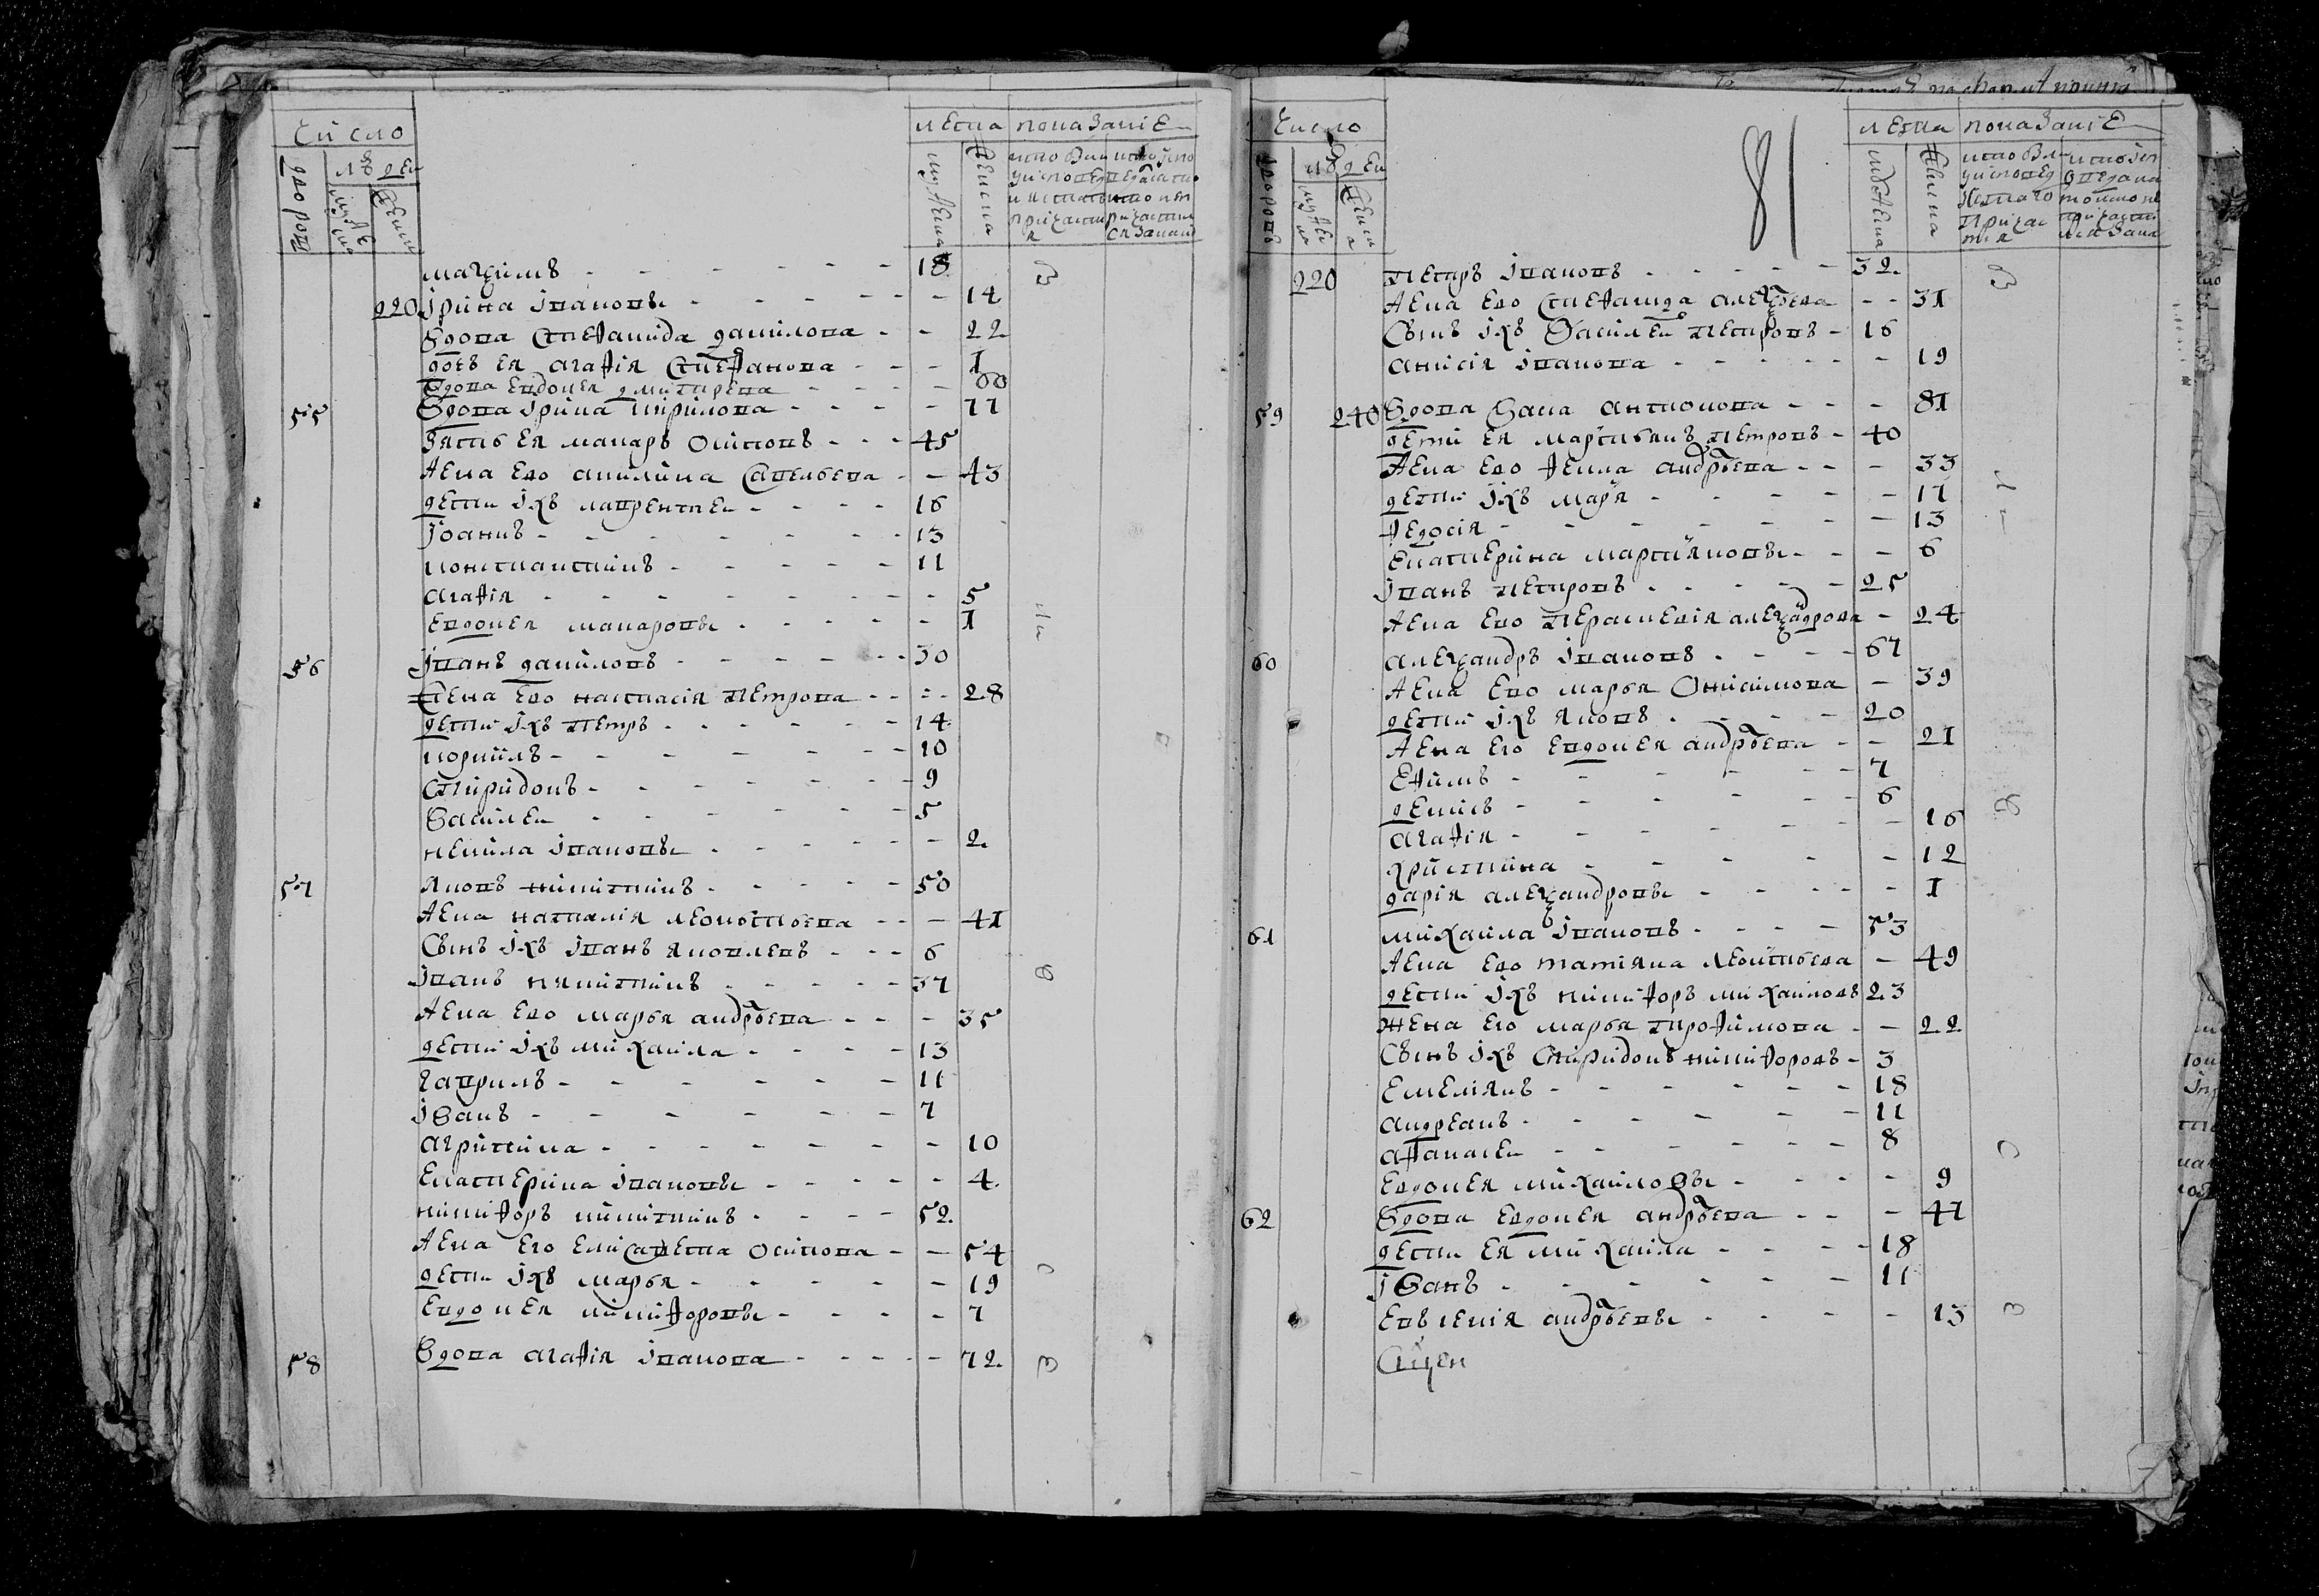 Число
лета показание
дворовъ
людеи
мужеска
женска
мужеска
женска
маѯимъ - - - - - - 18
220 Iрина Iвановы - - - - - - 14
Вдова Стефанида данилова - - 22
дочь ея агафiя Стефанова - - - 1
Вдова Евдокея дмитрева - - - - 60
55 Вдова Iрина кирилова - - - - 77
Зять ея макаръ осиповъ - - - 45
жена ево акилина Савельева - - 43
дети iхъ лаврентеи - - - - 16
Iоаннъ - - - - - - - 13
константинъ - - - - - 11
агафiя - - - - - - - 5
Евдокея макаровы - - - - - 1
56 Iванъ даниловъ - - - - - - 30
жена ево настасiя Петрова - - - - 28
дети iхъ Петръ - - - - - - 14
корнилъ - - - - - - - 10
Спиридонъ - - - - - - 9
Василеи - - - - - - 5
ненила Iвановы - - - - - - 2
57 яковъ никитинъ - - - - - 50
жена наталiя леонтьева - - - 41
Сынъ iхъ Iванъ яковлевъ - - - 6
Iванъ никитинъ - - - - - 37
жена ево марья андрѣева - - - 35
дети iхъ михаила - - - - 13
гаврилъ - - - - - - 11
Iванъ - - - - - - 7
агрипина - - - - - - - 10
Екатерина Iвановы - - - - - 4
никифоръ никитинъ - - - - 52
жена его елисавета осипова - - 54
дети iхъ марья - - - - - 19
Евдокея никифоровы - - - - 7
58 Вдова агафiя Iванова - - - - - 72
81
Число
лета показание
дворовъ
людеи
мужеска
женска
мужеска
женска
220 Петръ Iвановъ - - - - - 32
жена ево Стефанида алеѯѣева - - 31
Сынъ iхъ Василеи Петровъ - 16
анисiя Iванова - - - - - - 19
59 240 Вдова анна антонова - - - 81
дети ея мартьянъ Петровъ - 40
жена ево фекла андрѣева - - - 33
дети iхъ маря - - - - - 17
федосiя - - - - - - - 13
Екатерина мартiяновы - - - 6
Iванъ Петровъ - - - - - 25
жена ево Парасковiя алеѯадрова - 24
60 алеѯандръ Iвановъ - - - - 67
жена ево марья Онисимова - 39
дети iхъ яковъ - - - - 20
жена его Евдокея андрѣева - - 21
Ефимъ - - - - - - 7
денисъ - - - - - - 6
агафiя - - - - - - - 16
христина - - - - - 12
дарiя алеѯандровы - - - - - 1
61 михаила Iвановъ - - - - 53
жена ево татiяна леонтьева - 49
дети iхъ никифоръ михаиловъ 23
жена его марья трофимова - - 22
Сынъ iхъ Спиридонъ никифоровъ - 3
Емелiянъ - - - - - - 18
андреанъ - - - - - - 11
афанасеи - - - - - - 8
Евдокея михаиловы - - - - 9
62 Вдова Евдокея андрѣева - - - 47
дети ея михаила - - - - 18
Iванъ - - - - - - 11
Евгенiя андрѣевы - - - - - 13